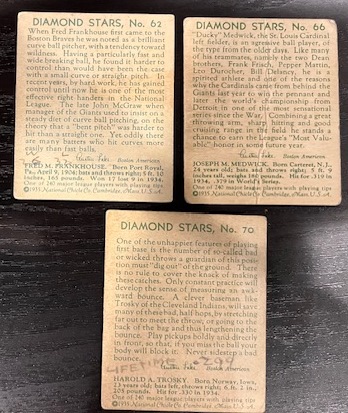 DIAMOND STARS, No. 62
When Fred Frankhouse first came to the
Boston Braves he was noted as a brilliant
curve ball pitcher, with a tendency toward
wildness. Having a particularly fast and
wide breaking ball, he found it harder to
control than would have been the case
with a small curve or straight pitch. In
recent years, by hard work, he has gained
control until now he is one of the most
effective right handers in the National
League. The late John McGraw when
manager of the Giants used to insist on a
steady diet of curve ball pitching, on the
theory that a "bent pitch" was harder to
hit than a straight one. Yet oddly there
are many batters who hit curves more
easily than fast balls.
Austen Lake. Boston American
FRED M. FRANKHOUSE. Born Port Royal,
Pa., April 9, 1904; bats and throws right; 5 ft. 10
inches, 165 pounds. Won 17 lost 9 in 1934.
One of 240 major league players with playing tips
©1935 National Chicle Co. Cambridge, Mass. U.S.A.
DIAMOND STARS, No. 66
"Ducky" Medwick, the St. Louis Cardinal
left fielder, is an agressive ball player, of
the type from the olden days. Like many
of his teammates, namely the two Dean
brothers, Frank Frisch, Pepper Martin,
Leo Durocher, Bill Delancey, he is a
spirited athlete and one of the reasons
why the Cardinals came from behind the
Giants last year to win the pennant and
later the world's championship from
Detroit in one of the most sensational
series since the War. Combining a great
throwing arm, sharp hitting and good
cruising range in the field he stands a
chance to earn the League's "Most Valu-
able" honor in some future year.
Austen Lake. Boston American
JOSEPH M. MEDWICK. Born Carteret, N.J.,
24 years old; bats and throws right; 5 ft. 9
inches tall, weighs 180 pounds. Hit for .319 in
1934, .379 in World's Series.
One of 240 major league players with playing tips
©1935 National Chicle Co. Cambridge, Mass. U.S.A.
DIAMOND STARS, No. 70
One of the unhappier features of playing
first base is the number of so-called bad
or wicked throws a guardian of this posi-
tion must "dig out" of the ground. There
is no rule to cover the knack of making
these catches. Only constant practice will
develop the sense of measuring an awk-
ward bounce. A clever baseman like
Trosky of the Cleveland Indians, will save
many of these bad, half hops, by stretching
far out to meet the throw, or going to the
back of the bag and thus lengthening the
bounce. Play pickups boldly and directly
in front, so that, if you miss the ball your
body will block it. Never sidestep a bad
bounce.
Austen Lake. Boston American
LIFETIME .299
HAROLD A. TROSKY. Born Norway, Iowa,
23 years old; bats left, throws right; 6 ft. 2 in.,
198 pounds. Hit for .330 in 1934.
One of 240 major league players with playing tips
©1935 National Chicle Co. Cambridge, Mass. U.S.A.